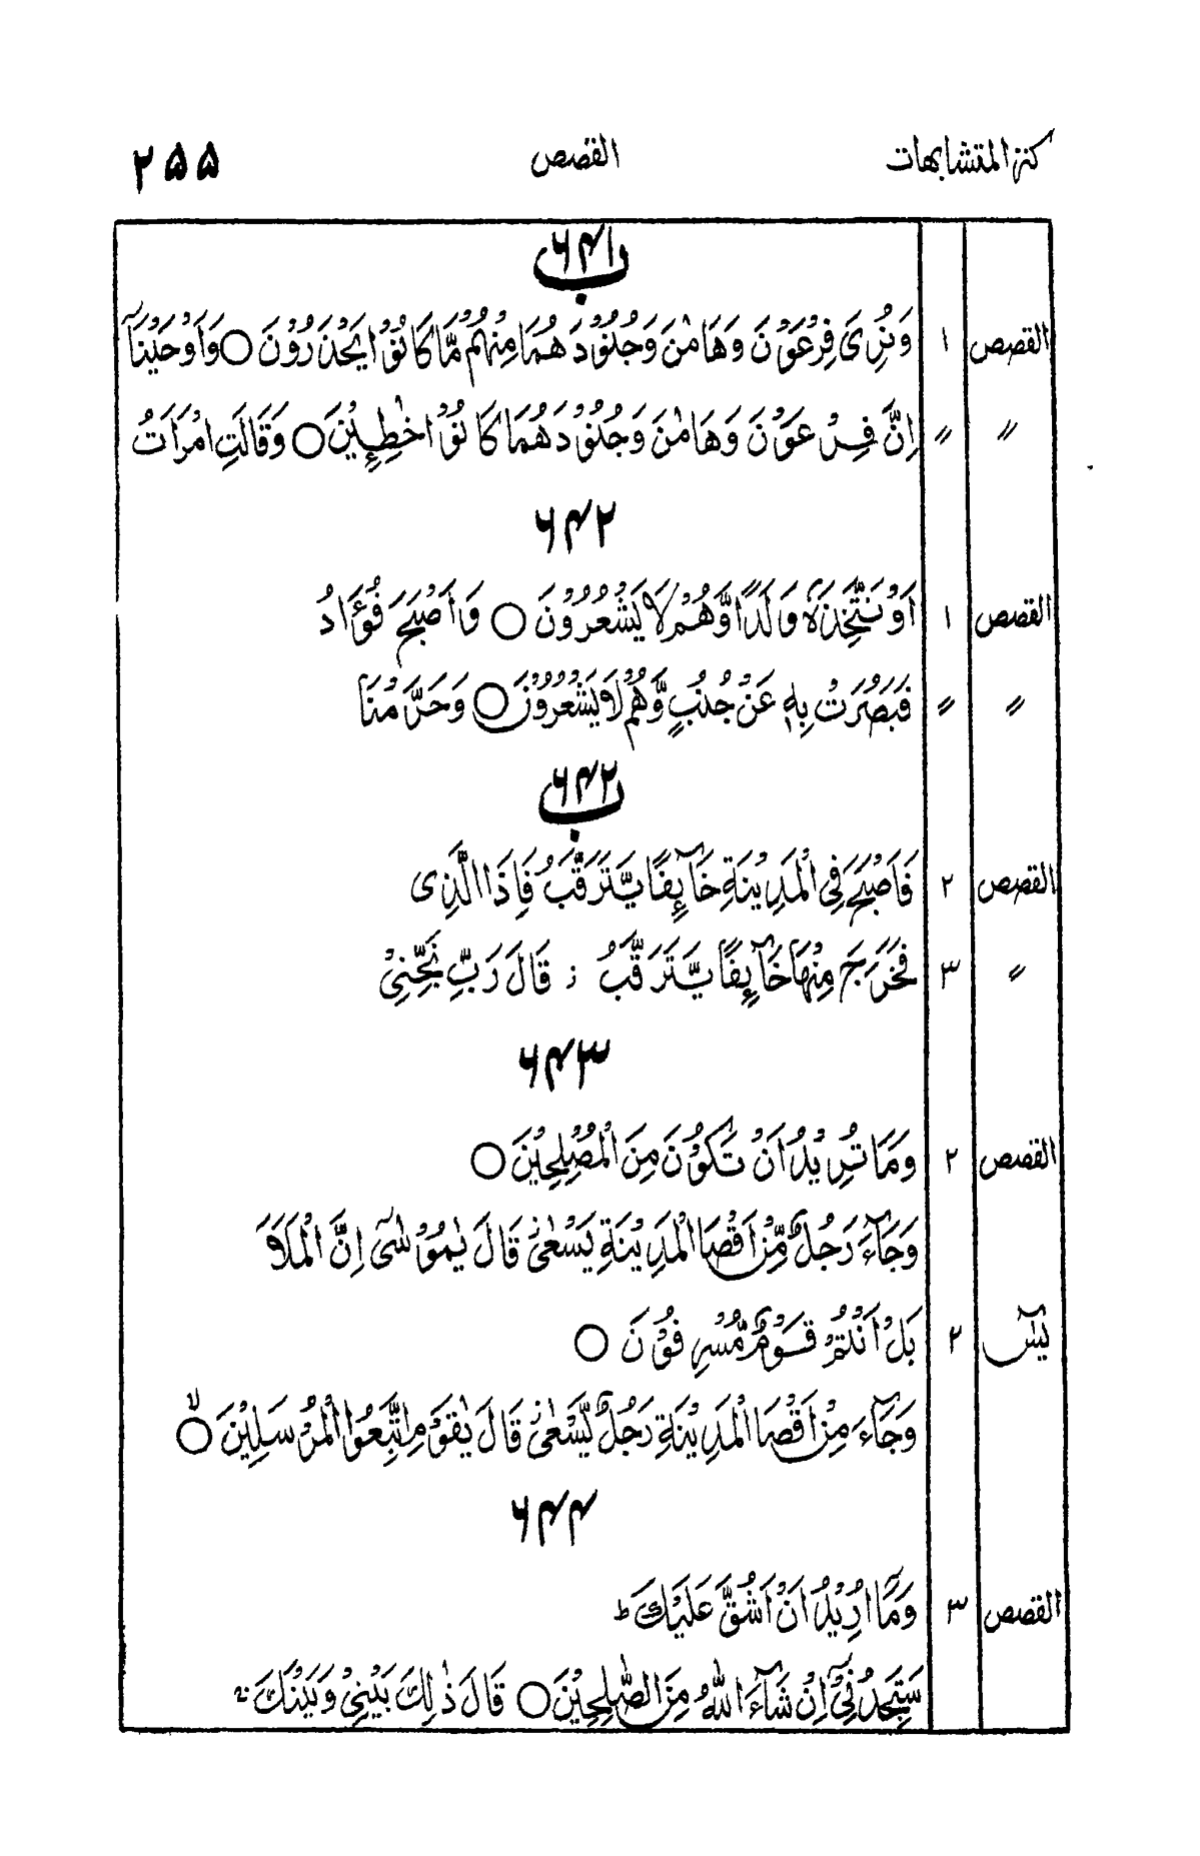 كنز المتشابهات القصص ۲۵۵
۶۴۱ ب
القصص ۱ وَنُرِىَ فِرْعَوْنَ وَهَامٰنَ وَجُنُوْدَهُمَا مِنْهُمْ مَّا كَانُوْا يَحْذَرُوْنَ ○ وَاَوْحَيْنَآ
〃 〃 اِنَّ فِرْعَوْنَ وَهَامٰنَ وَجُنُوْدَهُمَا كَانُوْا خٰطِـِٕيْنَ ○ وَقَالَتِ امْرَاَتُ
۶۴۲
القصص ۱ اَوْ نَتَّخِذَهٗ وَلَدًا وَّهُمْ لَا يَشْعُرُوْنَ ○ وَاَصْبَحَ فُؤَادُ
〃 〃 فَبَصُرَتْ بِهٖ عَنْ جُنُبٍ وَّهُمْ لَا يَشْعُرُوْنَ ○ وَحَرَّمْنَا
۶۴۲ ب
القصص ۲ فَاَصْبَحَ فِى الْمَدِيْنَةِ خَآئِفًا يَّتَرَقَّبُ فَاِذَا الَّذِى
〃 ۳ فَخَرَجَ مِنْهَا خَآئِفًا يَّتَرَقَّبُ ز قَالَ رَبِّ نَجِّنِىْ
۶۴۳
القصص ۲ وَمَا تُرِيْدُ اَنْ تَكُوْنَ مِنَ الْمُصْلِحِيْنَ ○
وَجَآءَ رَجُلٌ مِّنْ اَقْصَا الْمَدِيْنَةِ يَسْعٰى قَالَ يٰمُوْسٰٓى اِنَّ الْمَلَاَ
يٰسٓ ۲ بَلْ اَنْتُمْ قَوْمٌ مُّسْرِفُوْنَ ○
وَجَآءَ مِنْ اَقْصَا الْمَدِيْنَةِ رَجُلٌ يَّسْعٰى قَالَ يٰقَوْمِ اتَّبِعُوا الْمُرْسَلِيْنَ ○ لا
۶۴۴
القصص ۳ وَمَآ اُرِيْدُ اَنْ اَشُقَّ عَلَيْكَ ط
سَتَجِدُنِىْٓ اِنْ شَآءَ اللّٰهُ مِنَ الصّٰلِحِيْنَ ○ قَالَ ذٰلِكَ بَيْنِىْ وَبَيْنَكَ